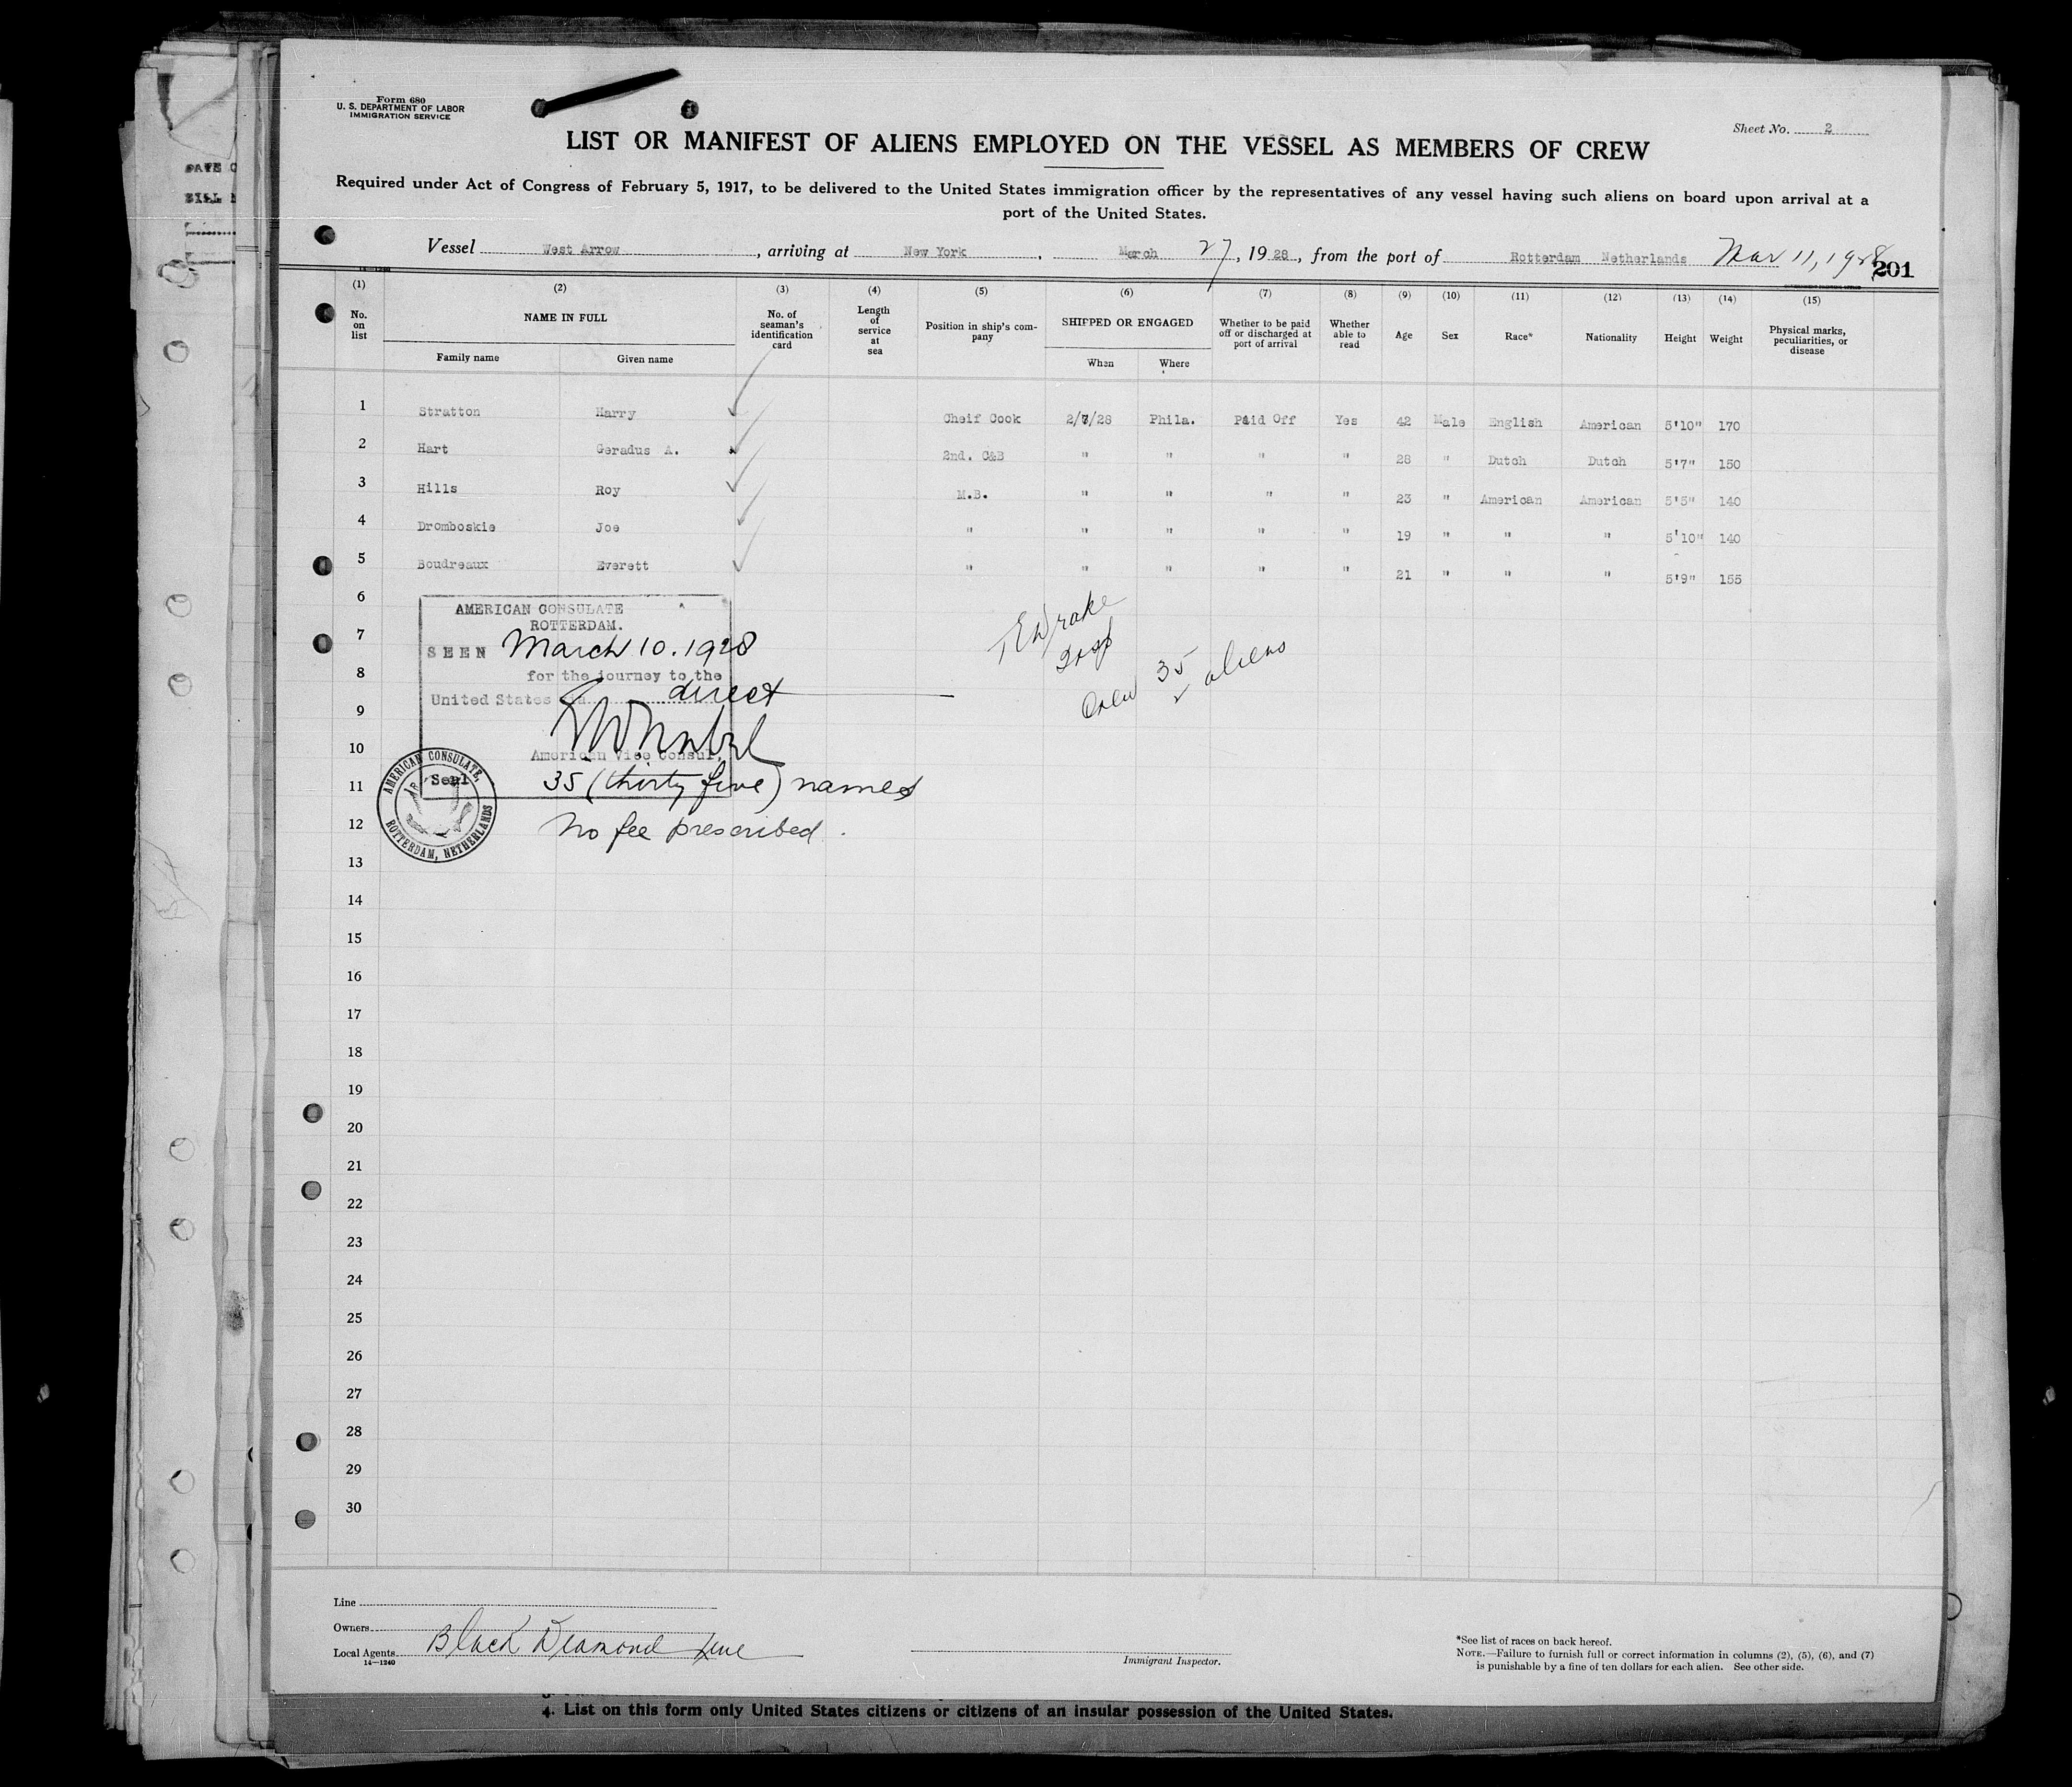 Form 680
U. S. DEPARTMENT OF LABOR
IMMIGRATION SERVICE
Sheet No. 2
LIST OR MANIFEST OF ALIENS EMPLOYED ON THE VESSEL AS MEMBERS OF CREW
Required under Act of Congress of February 5, 1917, to be delivered to the United States immigration officer by the representatives of any vessel having such aliens on board upon arrival at a
port of the United States.
Vessel West Arrow, arriving at New York, March 27, 1928, from the port of Rotterdam Netherlands Mar 11, 1928
201
(1) (2) (3) (4) (5) (6) (7) (8) (9) (10) (11) (12) (13) (14) (15)
No. on list NAME IN FULL Family name Given name No. of seaman's identification card Length of service at sea Position in ship's company SHIPPED OR ENGAGED When Where Whether to be paid off or discharged at port of arrival Whether able to read Age Sex Race* Nationality Height Weight Physical marks, peculiarities, or disease
1 Stratton Harry Cheif Cook 2/7/28 Phila. Paid Off Yes 42 Male English American 5'10" 170
2 Hart Geradus A. 2nd. C&B " " " " 28 " Dutch Dutch 5'7" 150
3 Hills Roy M.B. " " " " 23 " American American 5'5" 140
4 Dromboskie Joe " " " " " 19 " " " 5'10" 140
5 Boudreaux Everett " " " " " 21 " " " 5'9" 155
6
7
8
9
10
11
12
13
14
15
16
17
18
19
20
21
22
23
24
25
26
27
28
29
30
AMERICAN CONSULATE
ROTTERDAM.
SEEN March 10. 1928
for the journey to the
United States direct
American Vice Consul
Seal
AMERICAN CONSULATE, ROTTERDAM, NETHERLANDS
35 (thirty five) names
No fee prescribed.
T E Drake
Insp
Crew 35 aliens
Line
Owners
Local Agents Black Diamond Line
14—1240
Immigrant Inspector.
*See list of races on back hereof.
NOTE.—Failure to furnish full or correct information in columns (2), (5), (6), and (7)
is punishable by a fine of ten dollars for each alien. See other side.
4. List on this form only United States citizens or citizens of an insular possession of the United States.